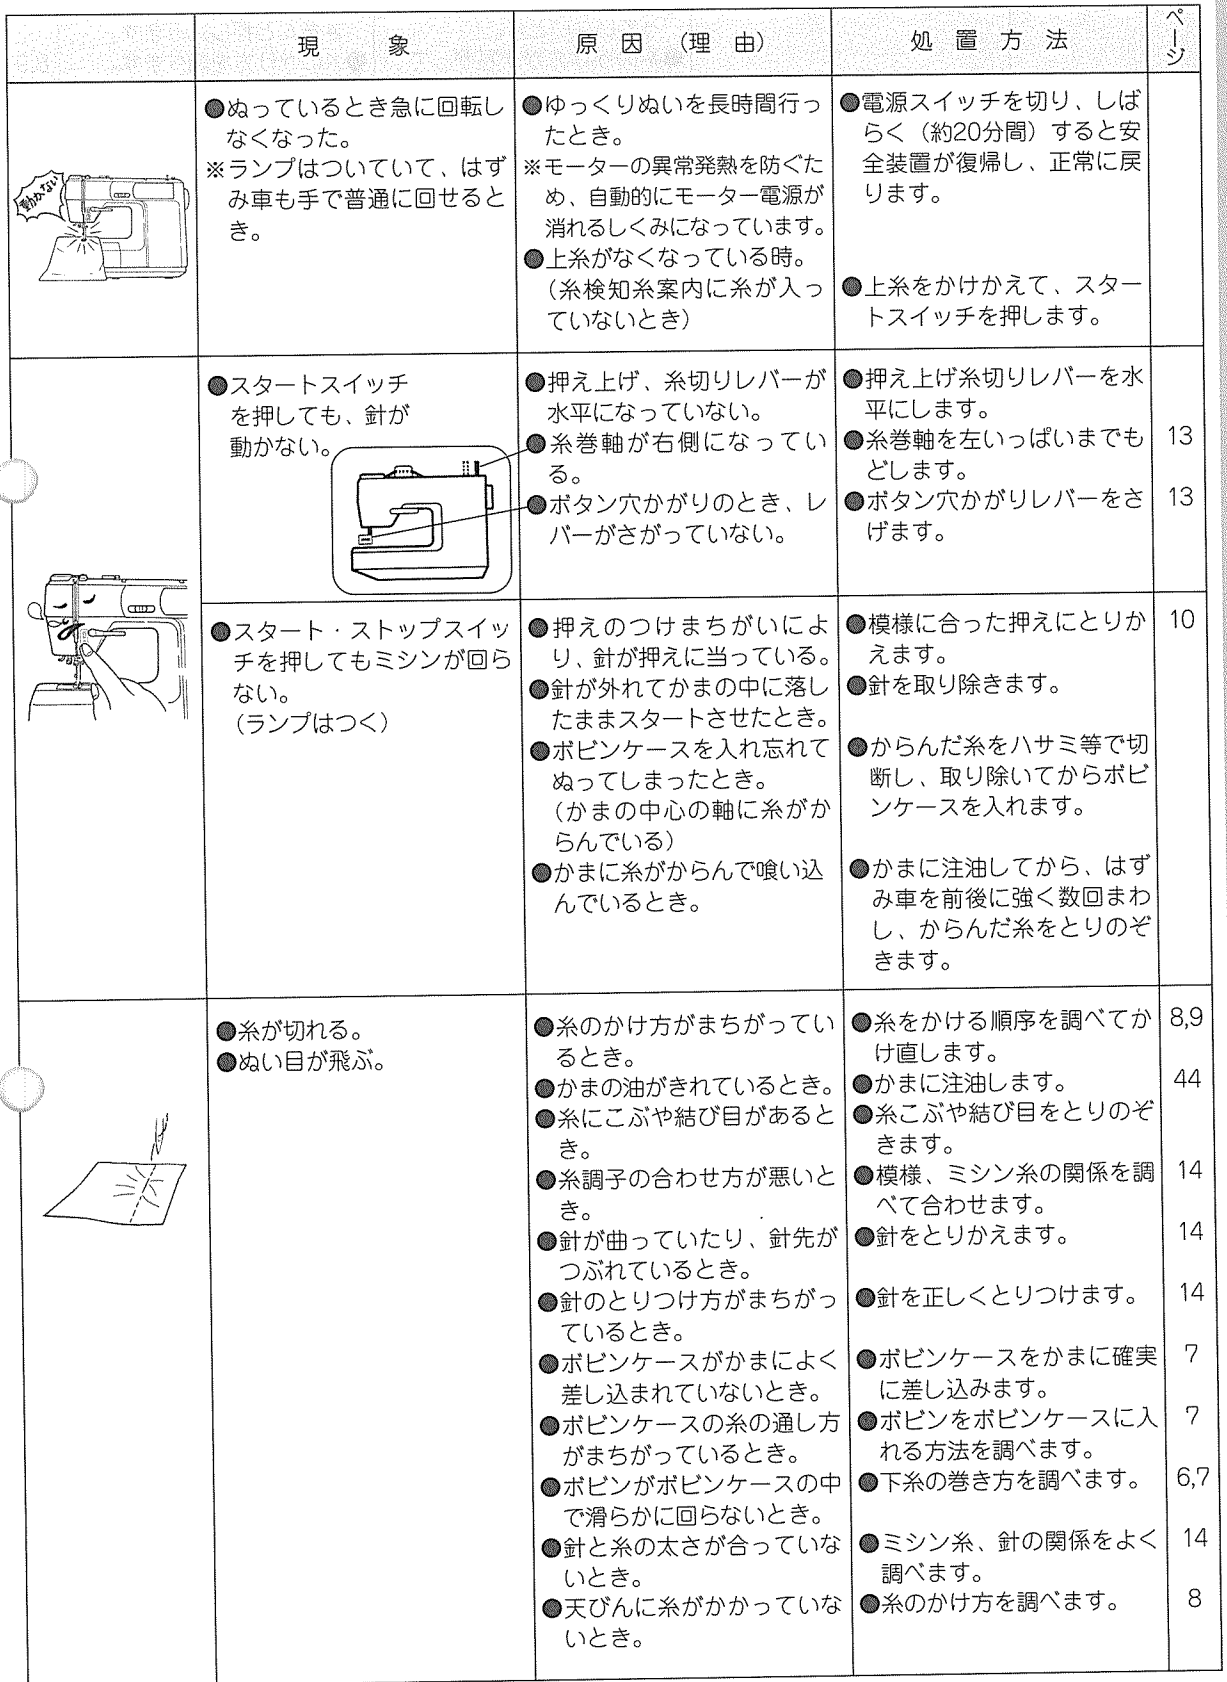 現象
原因（理由）
処置方法
ページ
動かない
●ぬっているとき急に回転し
なくなった。
※ランプはついていて、はず
み車も手で普通に回せると
き。
●ゆっくりぬいを長時間行っ
たとき。
※モーターの異常発熱を防ぐた
め、自動的にモーター電源が
消れるしくみになっています。
●上糸がなくなっている時。
（糸検知糸案内に糸が入っ
ていないとき）
●電源スイッチを切り、しば
らく（約20分間）すると安
全装置が復帰し、正常に戻
ります。
●上糸をかけかえて、スター
トスイッチを押します。
●スタートスイッチ
を押しても、針が
動かない。
●押え上げ、糸切りレバーが
水平になっていない。
●糸巻軸が右側になってい
る。
●ボタン穴かがりのとき、レ
バーがさがっていない。
●押え上げ糸切りレバーを水
平にします。
●糸巻軸を左いっぱいまでも
どします。
●ボタン穴かがりレバーをさ
げます。
13
13
●スタート・ストップスイッ
チを押してもミシンが回ら
ない。
（ランプはつく）
●押えのつけまちがいによ
り、針が押えに当っている。
●針が外れてかまの中に落し
たままスタートさせたとき。
●ボビンケースを入れ忘れて
ぬってしまったとき。
（かまの中心の軸に糸がか
らんでいる）
●かまに糸がからんで喰い込
んでいるとき。
●模様に合った押えにとりか
えます。
●針を取り除きます。
●からんだ糸をハサミ等で切
断し、取り除いてからボビ
ンケースを入れます。
●かまに注油してから、はず
み車を前後に強く数回まわ
し、からんだ糸をとりのぞ
きます。
10
●糸が切れる。
●ぬい目が飛ぶ。
●糸のかけ方がまちがってい
るとき。
●かまの油がきれているとき。
●糸にこぶや結び目があると
き。
●糸調子の合わせ方が悪いと
き。
●針が曲っていたり、針先が
つぶれているとき。
●針のとりつけ方がまちがっ
ているとき。
●ボビンケースがかまによく
差し込まれていないとき。
●ボビンケースの糸の通し方
がまちがっているとき。
●ボビンがボビンケースの中
で滑らかに回らないとき。
●針と糸の太さが合っていな
いとき。
●天びんに糸がかかっていな
いとき。
●糸をかける順序を調べてか
け直します。
●かまに注油します。
●糸こぶや結び目をとりのぞ
きます。
●模様、ミシン糸の関係を調
べて合わせます。
●針をとりかえます。
●針を正しくとりつけます。
●ボビンケースをかまに確実
に差し込みます。
●ボビンをボビンケースに入
れる方法を調べます。
●下糸の巻き方を調べます。
●ミシン糸、針の関係をよく
調べます。
●糸のかけ方を調べます。
8,9
44
14
14
14
7
7
6,7
14
8